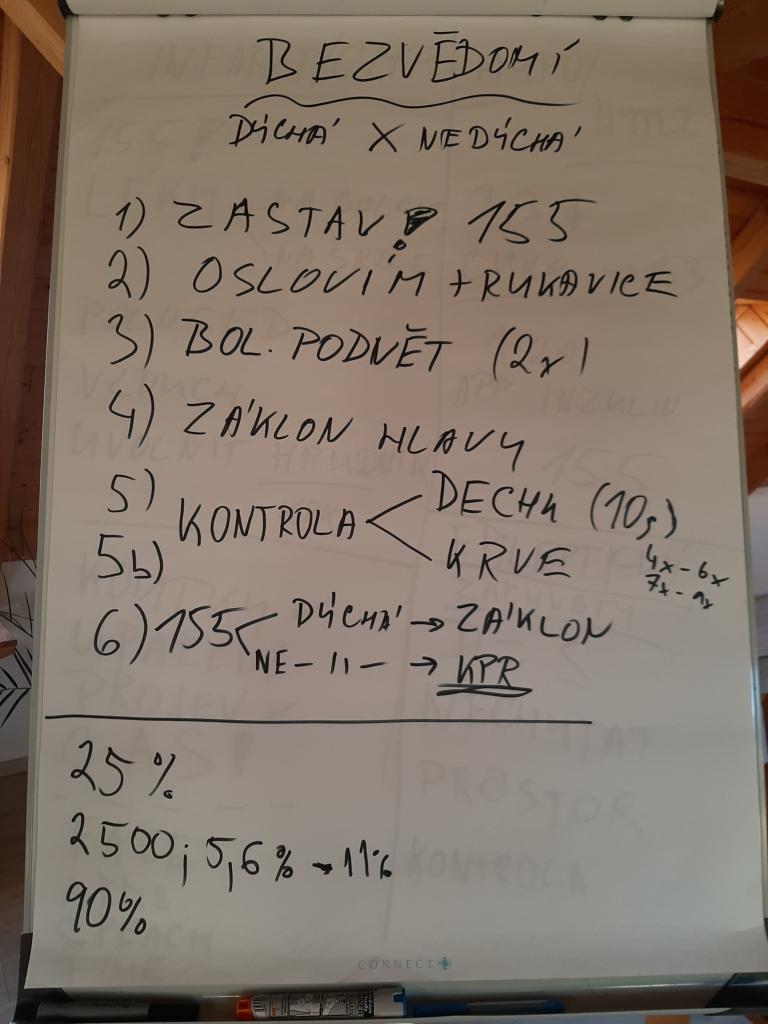 BEZVĚDOMÍ
DÝCHÁ X NEDÝCHÁ
1) ZASTAV 155
2) OSLOVÍM + RUKAVICE
3) BOL. PODNĚT (2x)
4) ZÁKLON HLAVY
5) KONTROLA DECHU (10s)
5b) KRVE 4x-6x
7x-9x
6) 155 DÝCHÁ → ZÁKLON
NE-11- → KPR
25%
2500; 5,6% - 11%
90%
CONNECT